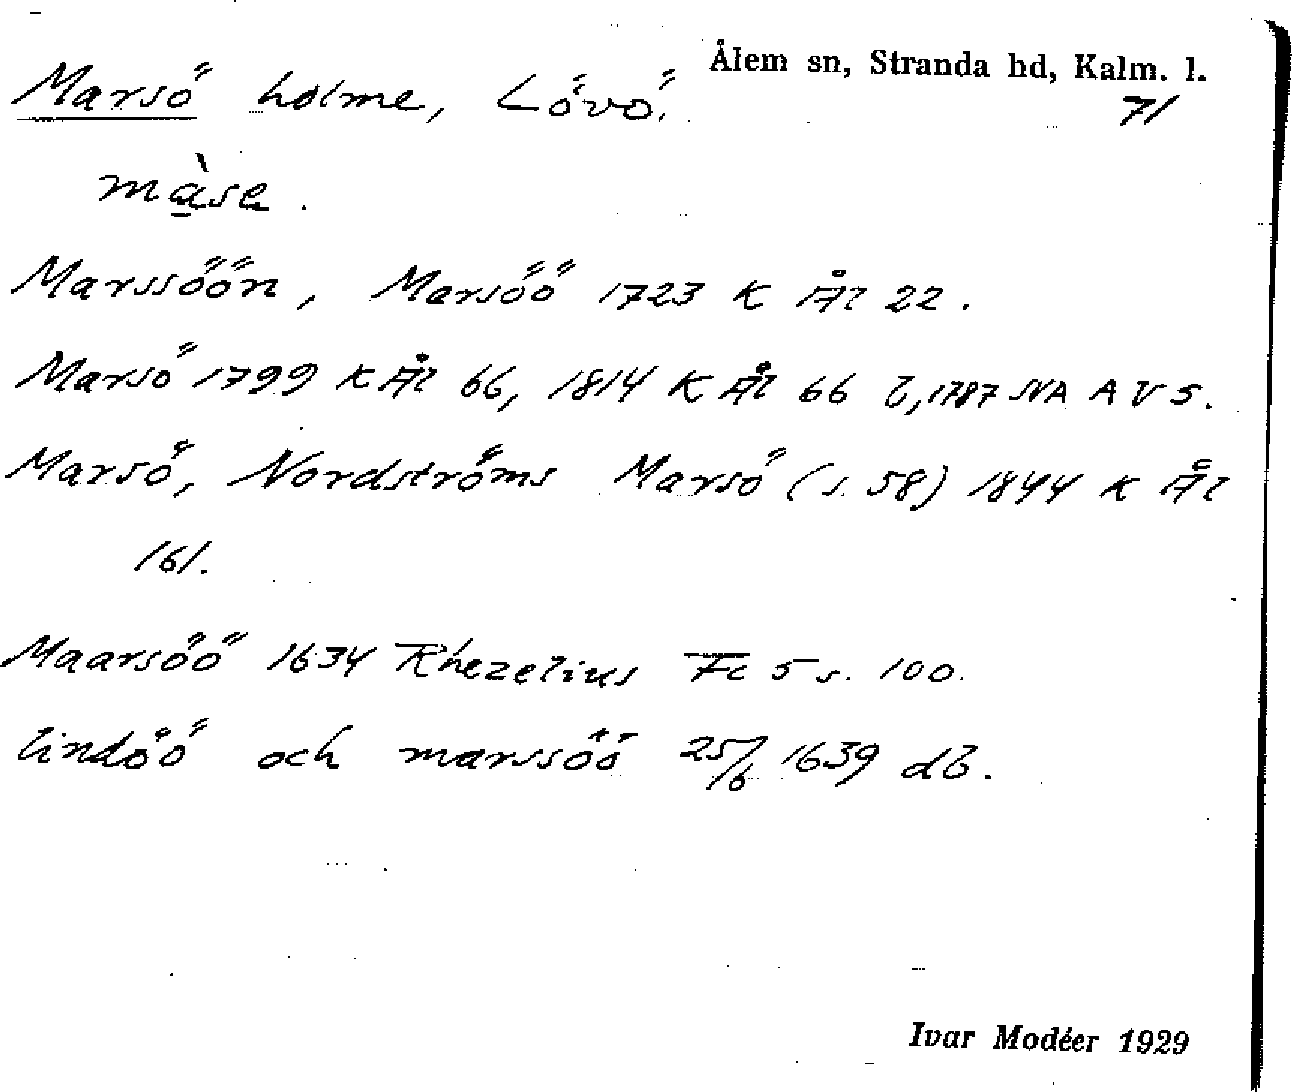 Ålem sn, Stranda hd, Kalm. l.
71
Marsö holme, Lövö.
Marssöön, Marsöö 1723 K Ål 22.
Marsö 1799 K Ål 66, 1814 K Ål 66 b, 1787 NA A V 5.
Marsö, Nordströms Marsö (s. 58) 1844 K Ål
161.
Maarsöö 1634 Rhezelius Fc 5 s. 100.
lindöö och marssöö 25/6 1639 db.
Ivar Modéer 1929